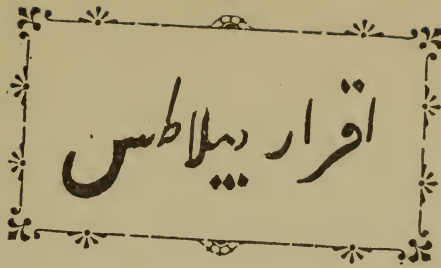 اقرار پیلاطس